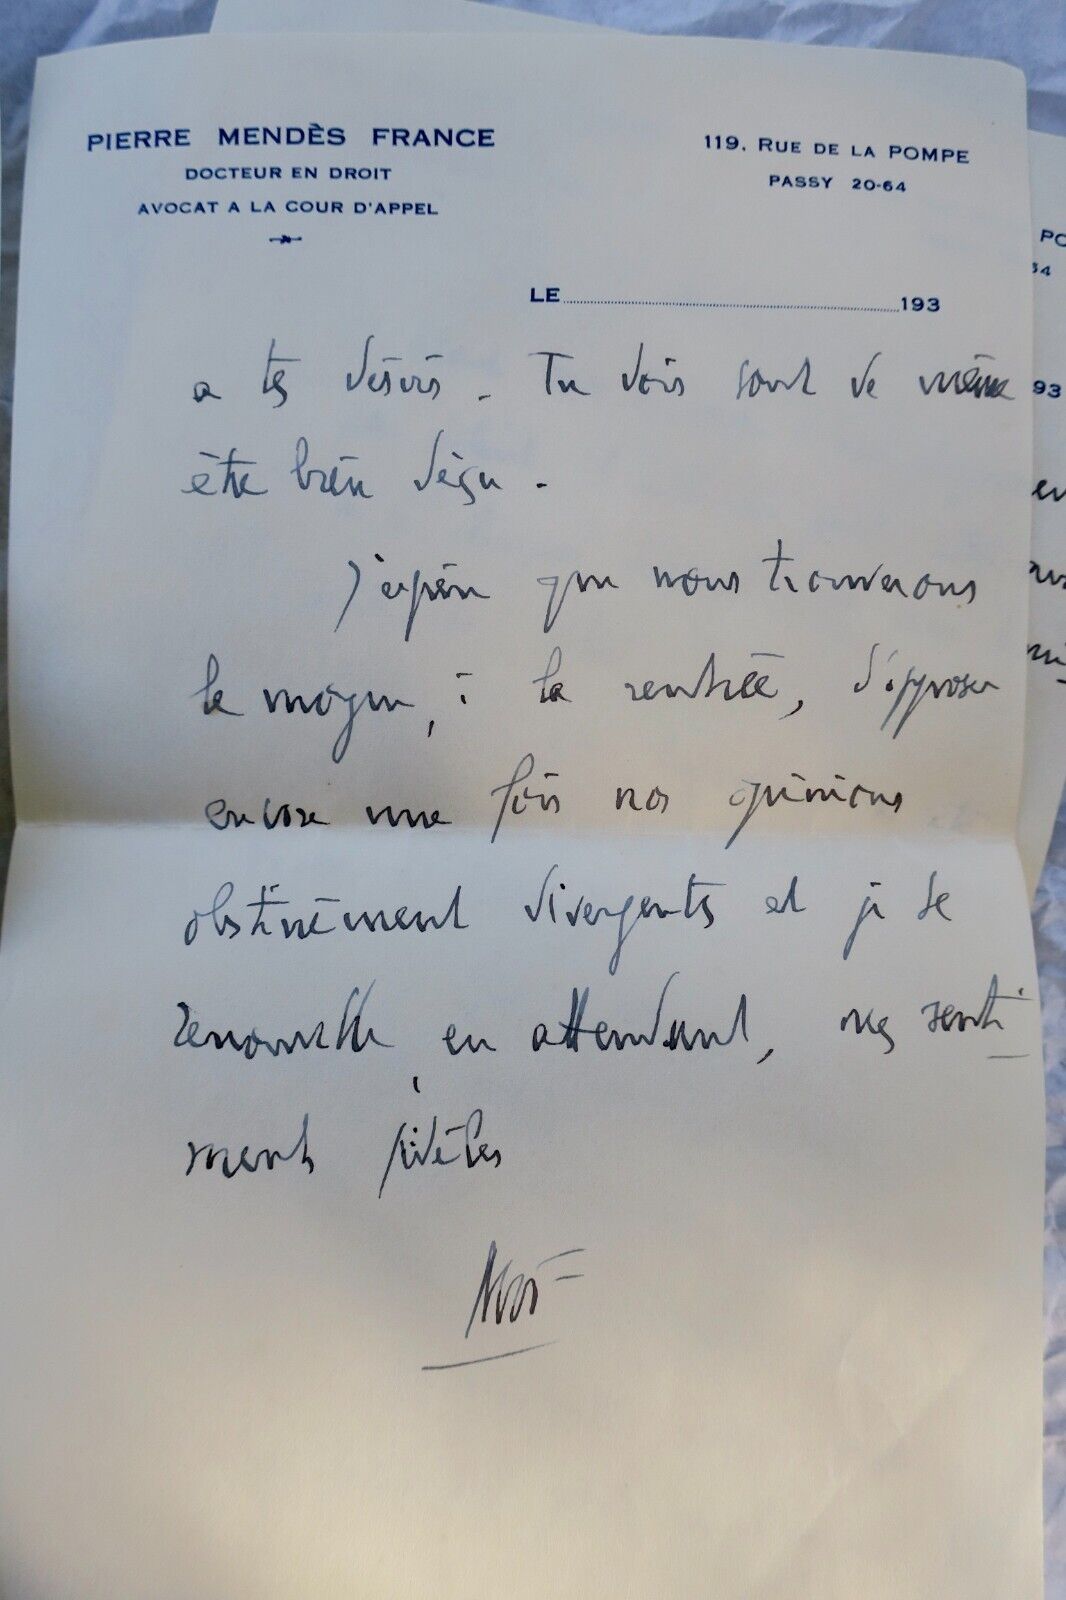 PIERRE MENDÈS FRANCE
DOCTEUR EN DROIT
AVOCAT A LA COUR D'APPEL
119, RUE DE LA POMPE
PASSY 20-64
LE 193
a tes désirs. Tu dois tout de même
être bien déçu.
J'espère que nous trouverons
le moyen, à la rentrée, d'opposer
encore une fois nos opinions
obstinément divergentes et je te
renouvelle, en attendant, mes senti-
ments fidèles
PO
54
93
en